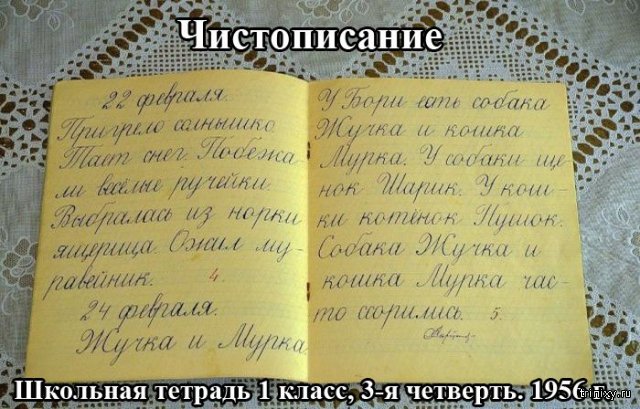 Чистописание
22 февраля.
Пригрело солнышко
Тает снег. Побежа-
ли весёлые ручейки
Выбралась из норки
ящерица. Ожил му-
равейник. 4
24 февраля.
Жучка и Мурка
У Бори есть собака
Жучка и кошка
Мурка. У собаки ще-
нок Шарик. У кош-
ки котёнок Пушок.
Собака Жучка и
кошка Мурка час-
то ссорились. 5.
Школьная тетрадь 1 класс, 3-я четверть. 1956 г.
trinixy.ru